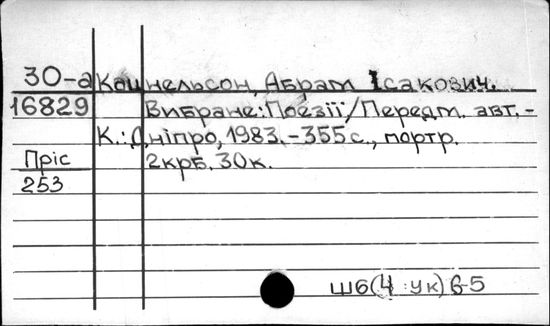 30-а Кацнельсон, Абрам Ісакович.
16829 Вибране: Поезії/Передм. авт. -
К.: Дніпро, 1983. - 355 с., портр.
Пріс 2крб. 30к.
253
Ш6(4 ук) 6-5